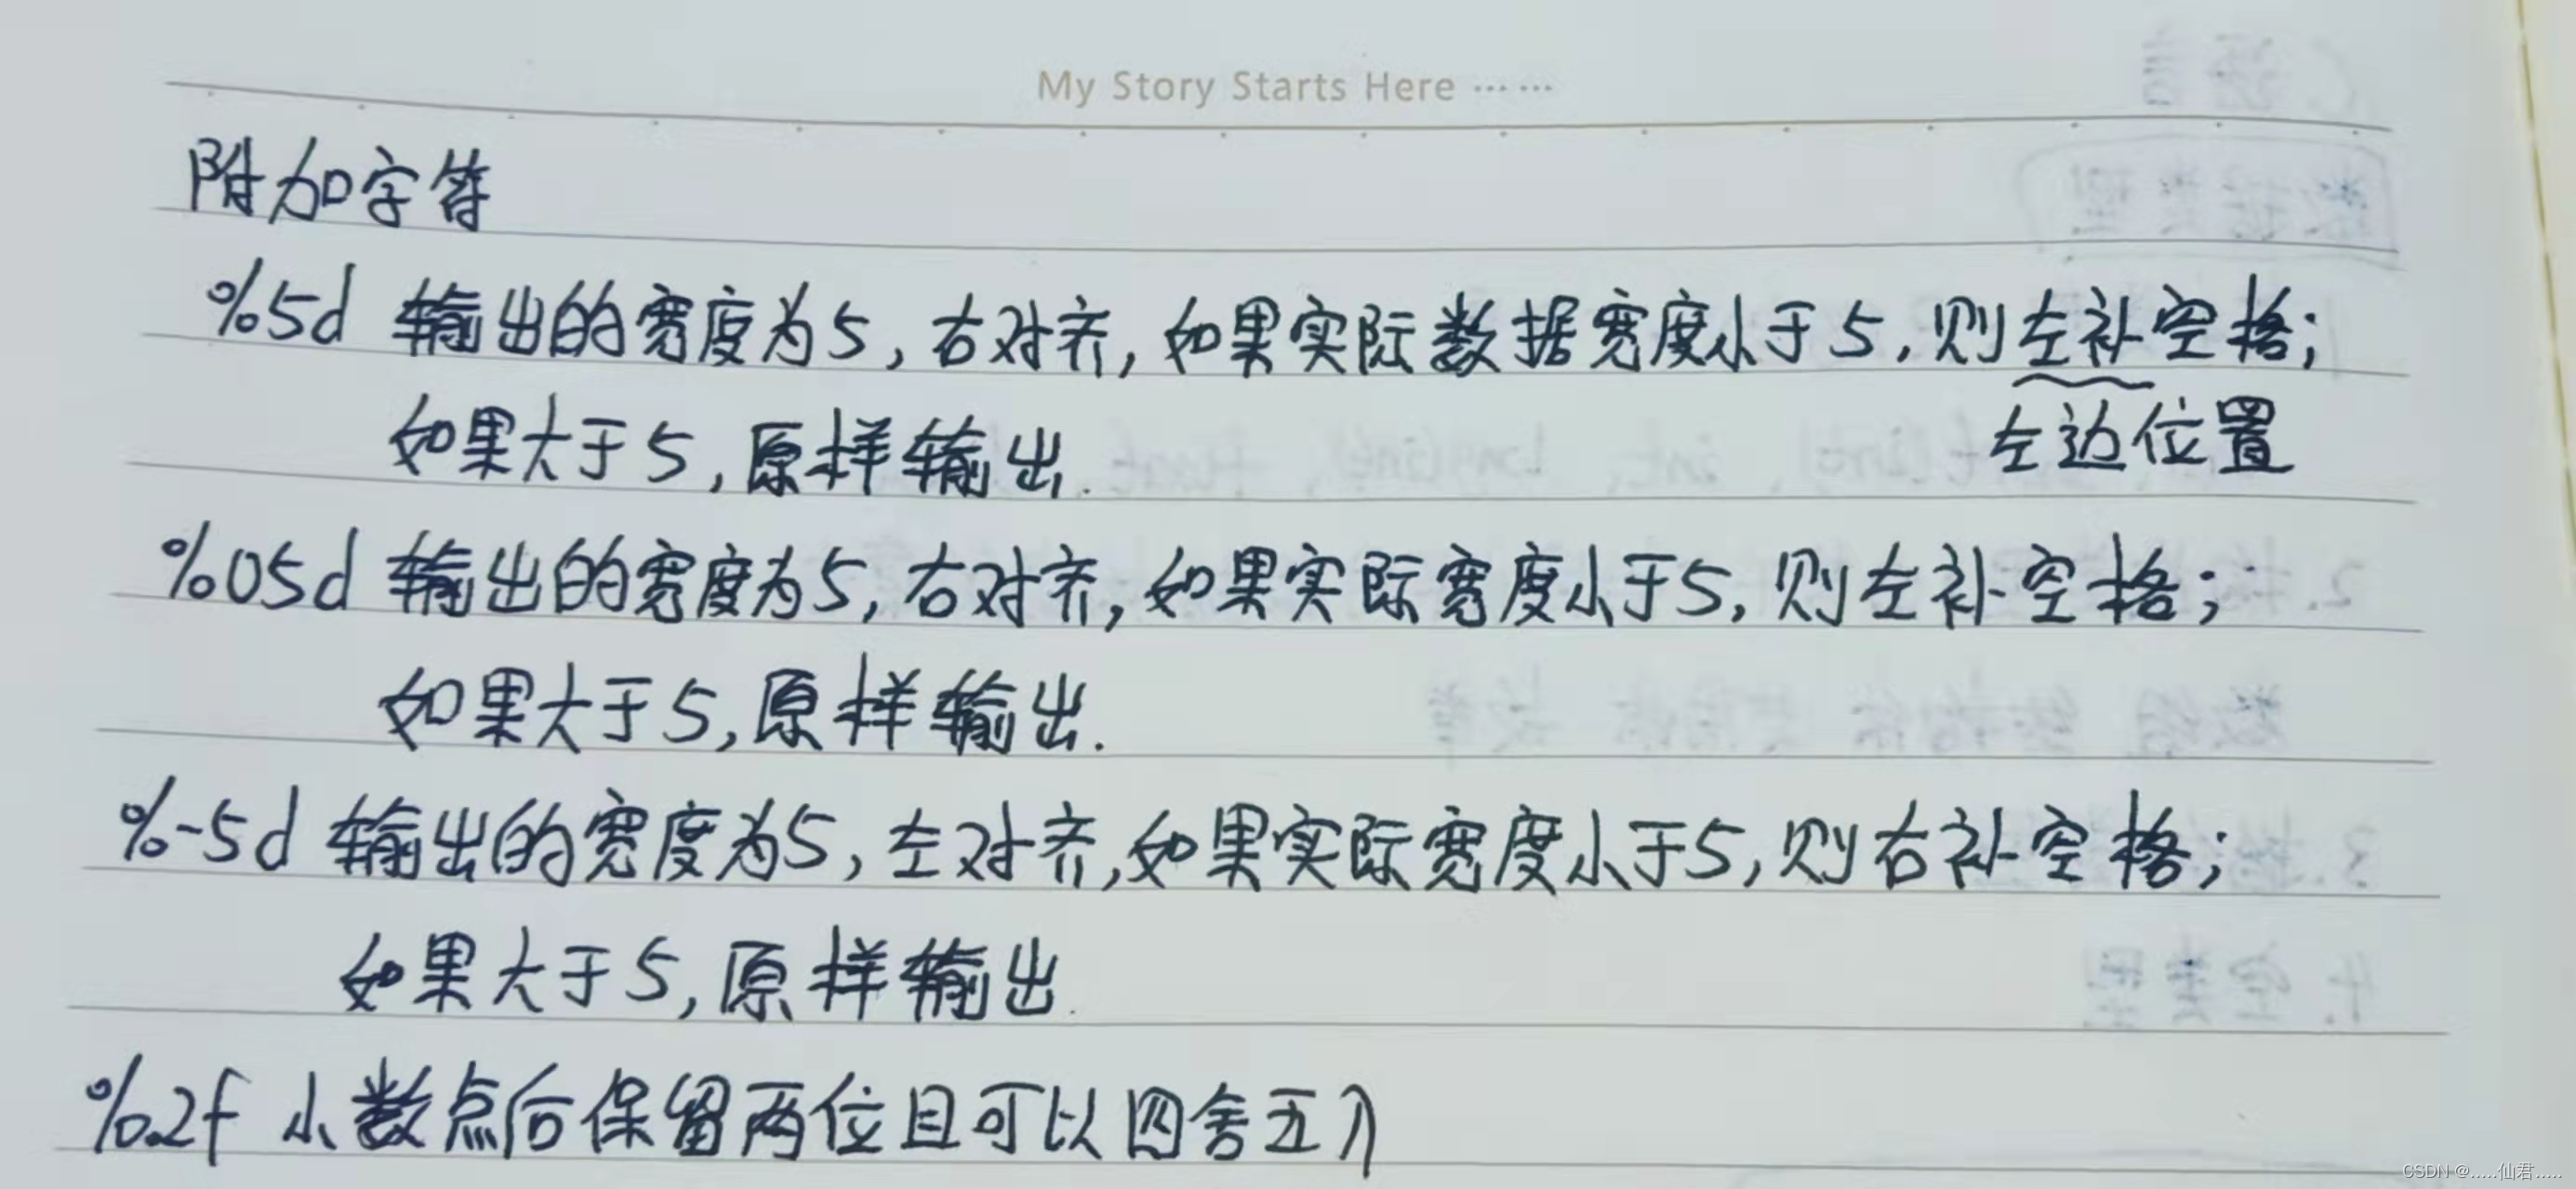 My Story Starts Here ······
附加字符
%5d 输出的宽度为5,右对齐,如果实际数据宽度小于5,则左补空格;
如果大于5,原样输出.
左边位置
%05d 输出的宽度为5,右对齐,如果实际宽度小于5,则左补空格;
如果大于5,原样输出.
%-5d 输出的宽度为5,左对齐,如果实际宽度小于5,则右补空格;
如果大于5,原样输出.
%.2f 小数点后保留两位且可以四舍五入
CSDN @.....仙君.....